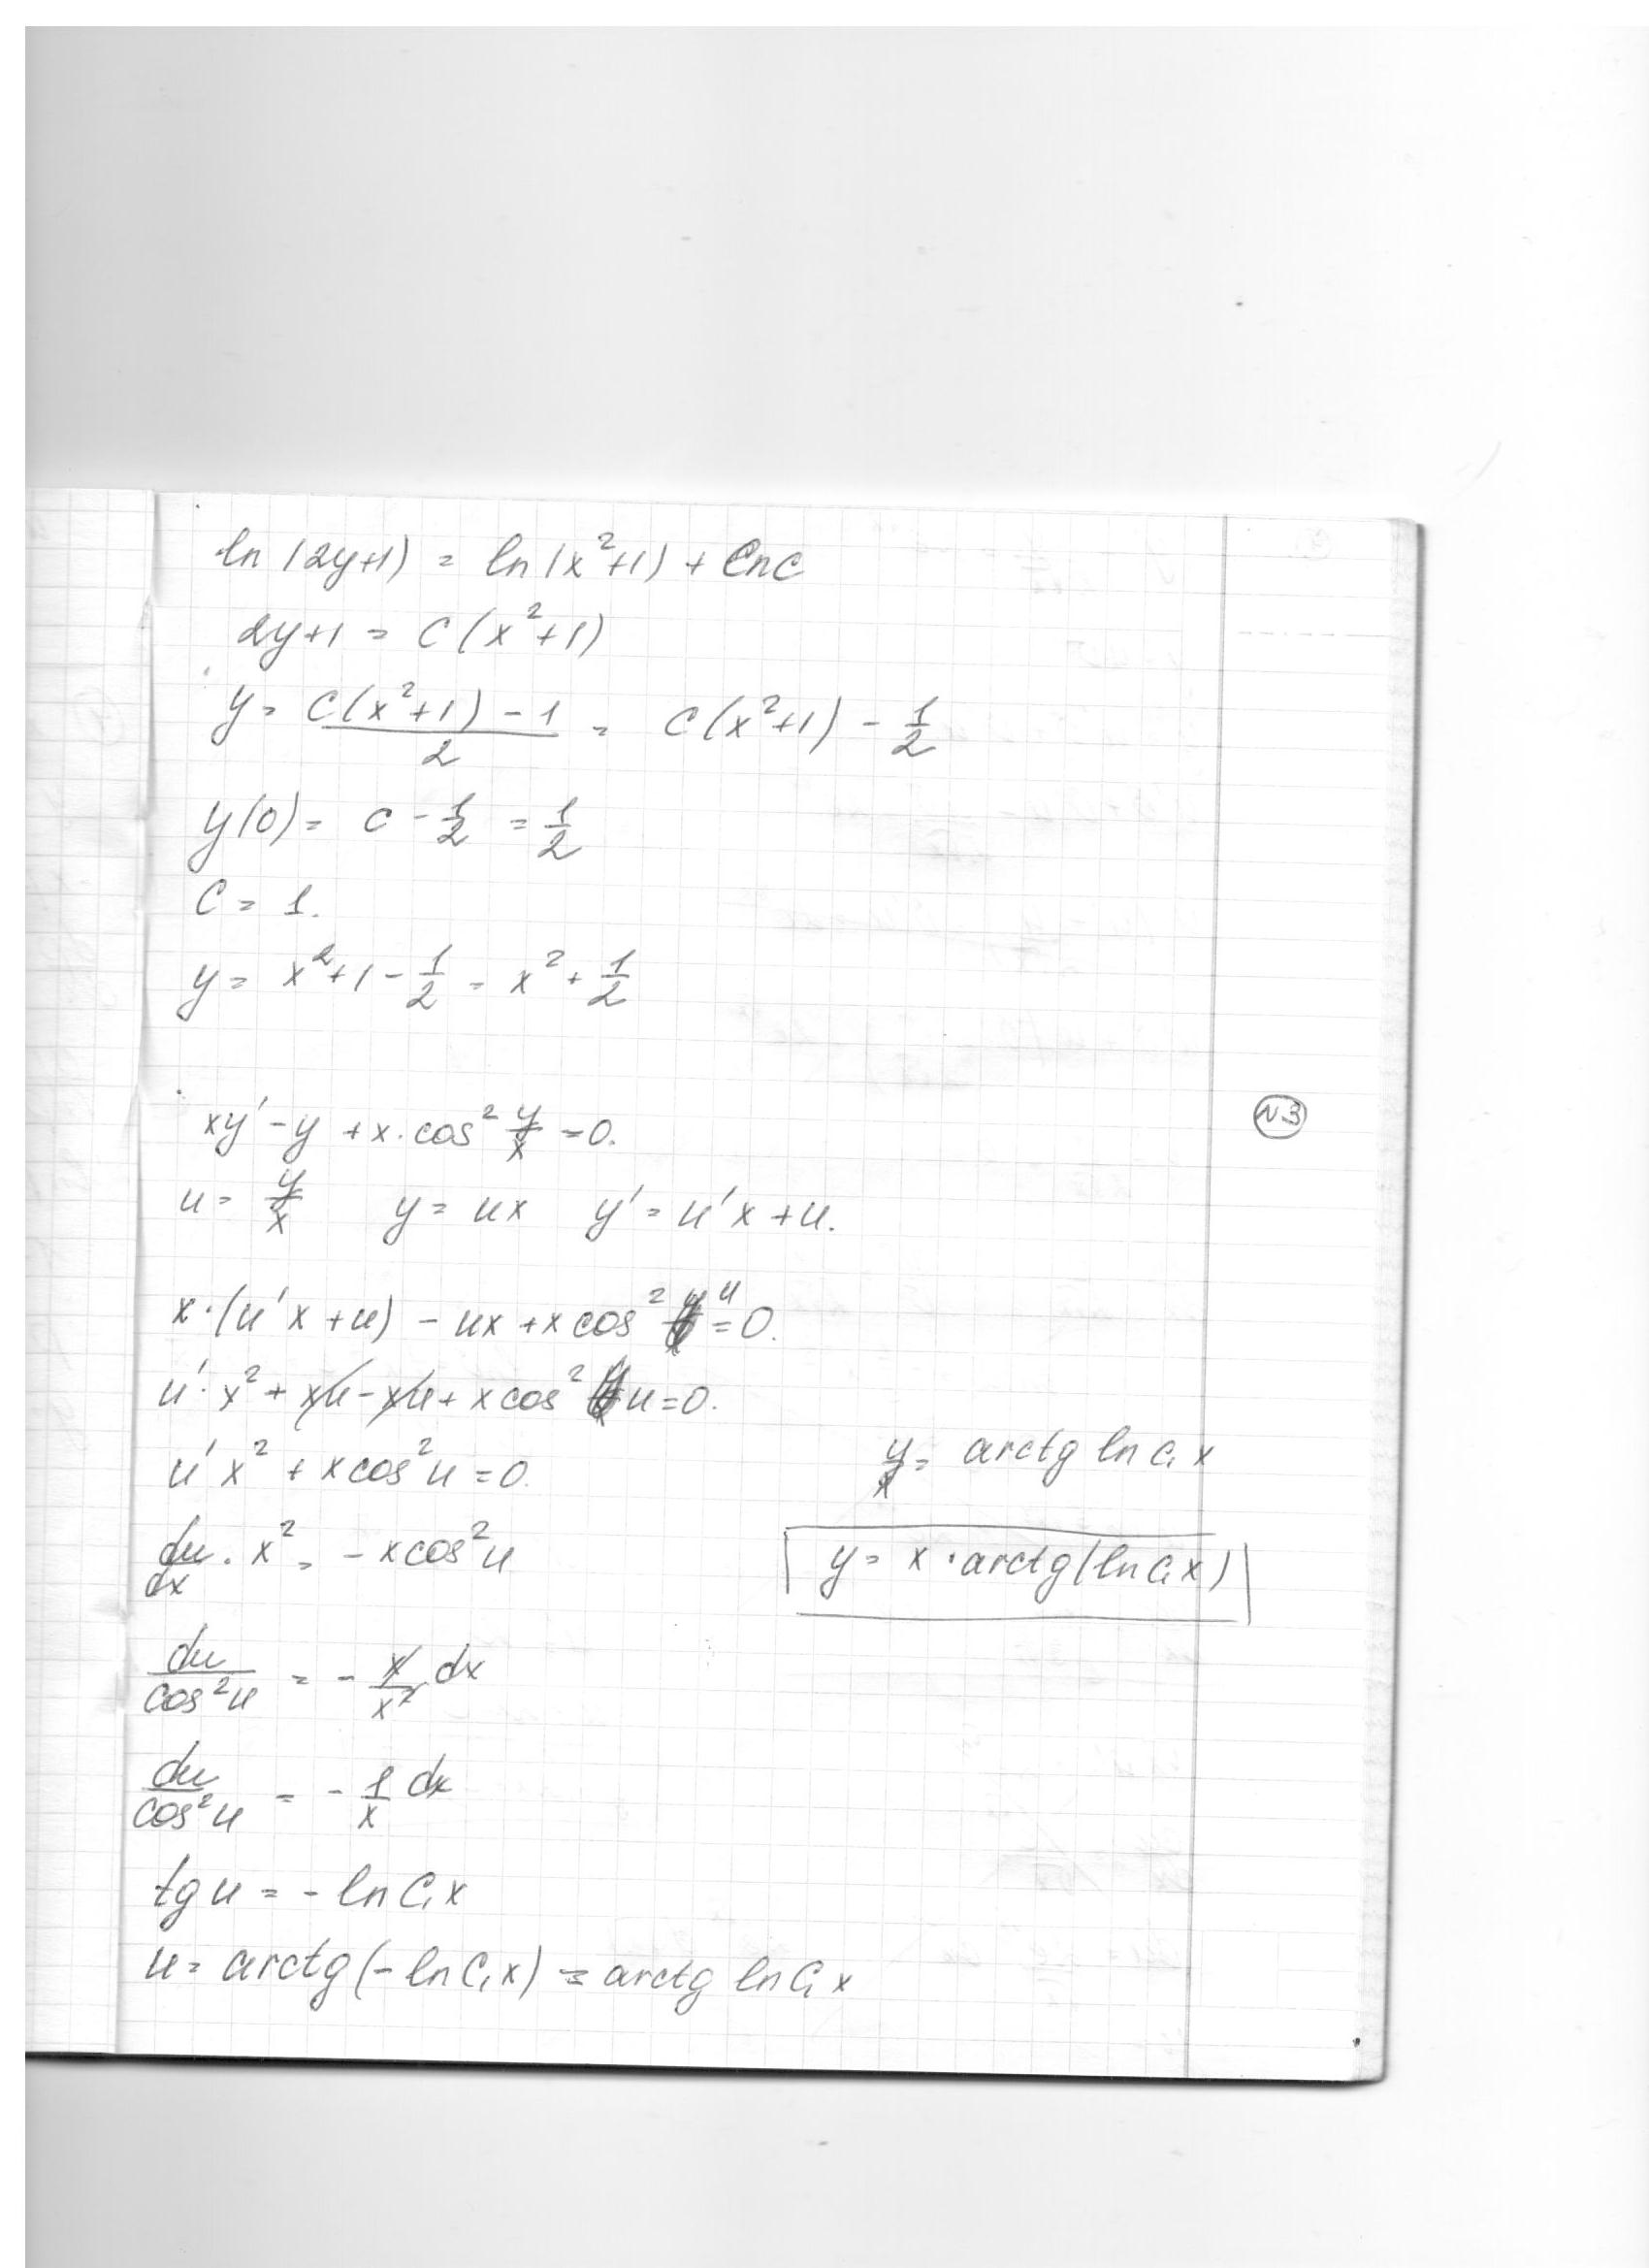 ln(2y+1) = ln(x²+1) + lnC
2y+1 = C(x²+1)
y = (C(x²+1) - 1)/2 = C(x²+1) - 1/2
y(0) = C - 1/2 = 1/2
C = 1.
y = x²+1 - 1/2 = x² + 1/2
N3
xy' - y + x · cos² y/x = 0.
u = y/x y = ux y' = u'x + u.
x · (u'x + u) - ux + x cos² u = 0.
u' · x² + xu - xu + x cos² u = 0.
u'x² + x cos² u = 0.
du/dx · x² = - x cos² u
du/cos² u = - x/x² dx
du/cos² u = - 1/x dx
tg u = - ln C₁x
u = arctg(- ln C₁x) = arctg ln C₁x
y/x = arctg ln C₁x
y = x · arctg(ln C₁x)